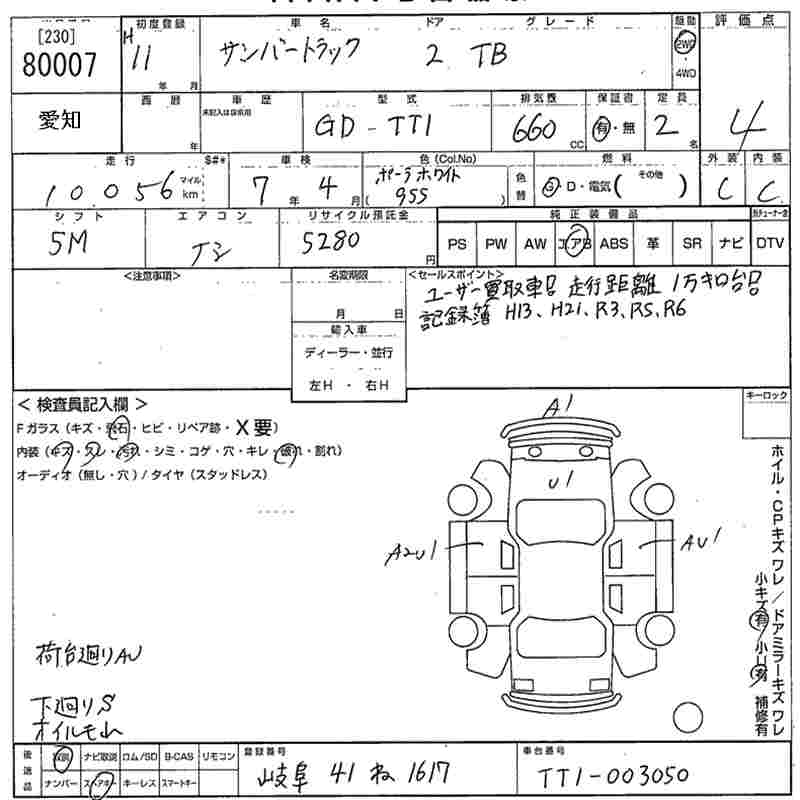 [230]
80007
初度登録
H 11
年 月
車名
サンバートラック
ドア
2
グレード
TB
駆動
2WD
4WD
評価点
4
愛知
西暦
年
車歴
未記入は自家用
型式
GD-TT1
排気量
660
CC
保証書
有・無
定員
2
名
走行
10.056
マイル
km
S#*
車検
7 年 4 月
色(Col.No)
ポーラホワイト
(955)
色替
燃料
G・D・電気( その他 )
外装
C
内装
C
シフト
5M
エアコン
ナシ
リサイクル預託金
5280
円
純正装備品
PS PW AW エアB ABS 革 SR ナビ DTV
<注意事項>
名変期限
月 日
輸入車
ディーラー・並行
左H・右H
<セールスポイント>
ユーザー買取車! 走行距離 1万キロ台!
記録簿 H13、H21、R3、R5、R6
<検査員記入欄>
Fガラス(キズ・飛石・ヒビ・リペア跡・X要)
内装(キズ・スレ・汚れ・シミ・コゲ・穴・キレ・破れ・割れ)
オーディオ(無し・穴)/タイヤ(スタッドレス)
キーロック
A1
U1
A2U1
AU1
ホイル・CPキズ ワレ/ドアミラーキズ ワレ
小キズ有/小U有 補修有
荷台廻りAU
下廻りS
オイルモレ
後送品
取説 ナビ取説 ロム/SD B-CAS リモコン
ナンバー スペアキー キーレス スマートキー
登録番号
岐阜 41 ね 1617
車台番号
TT1-003050